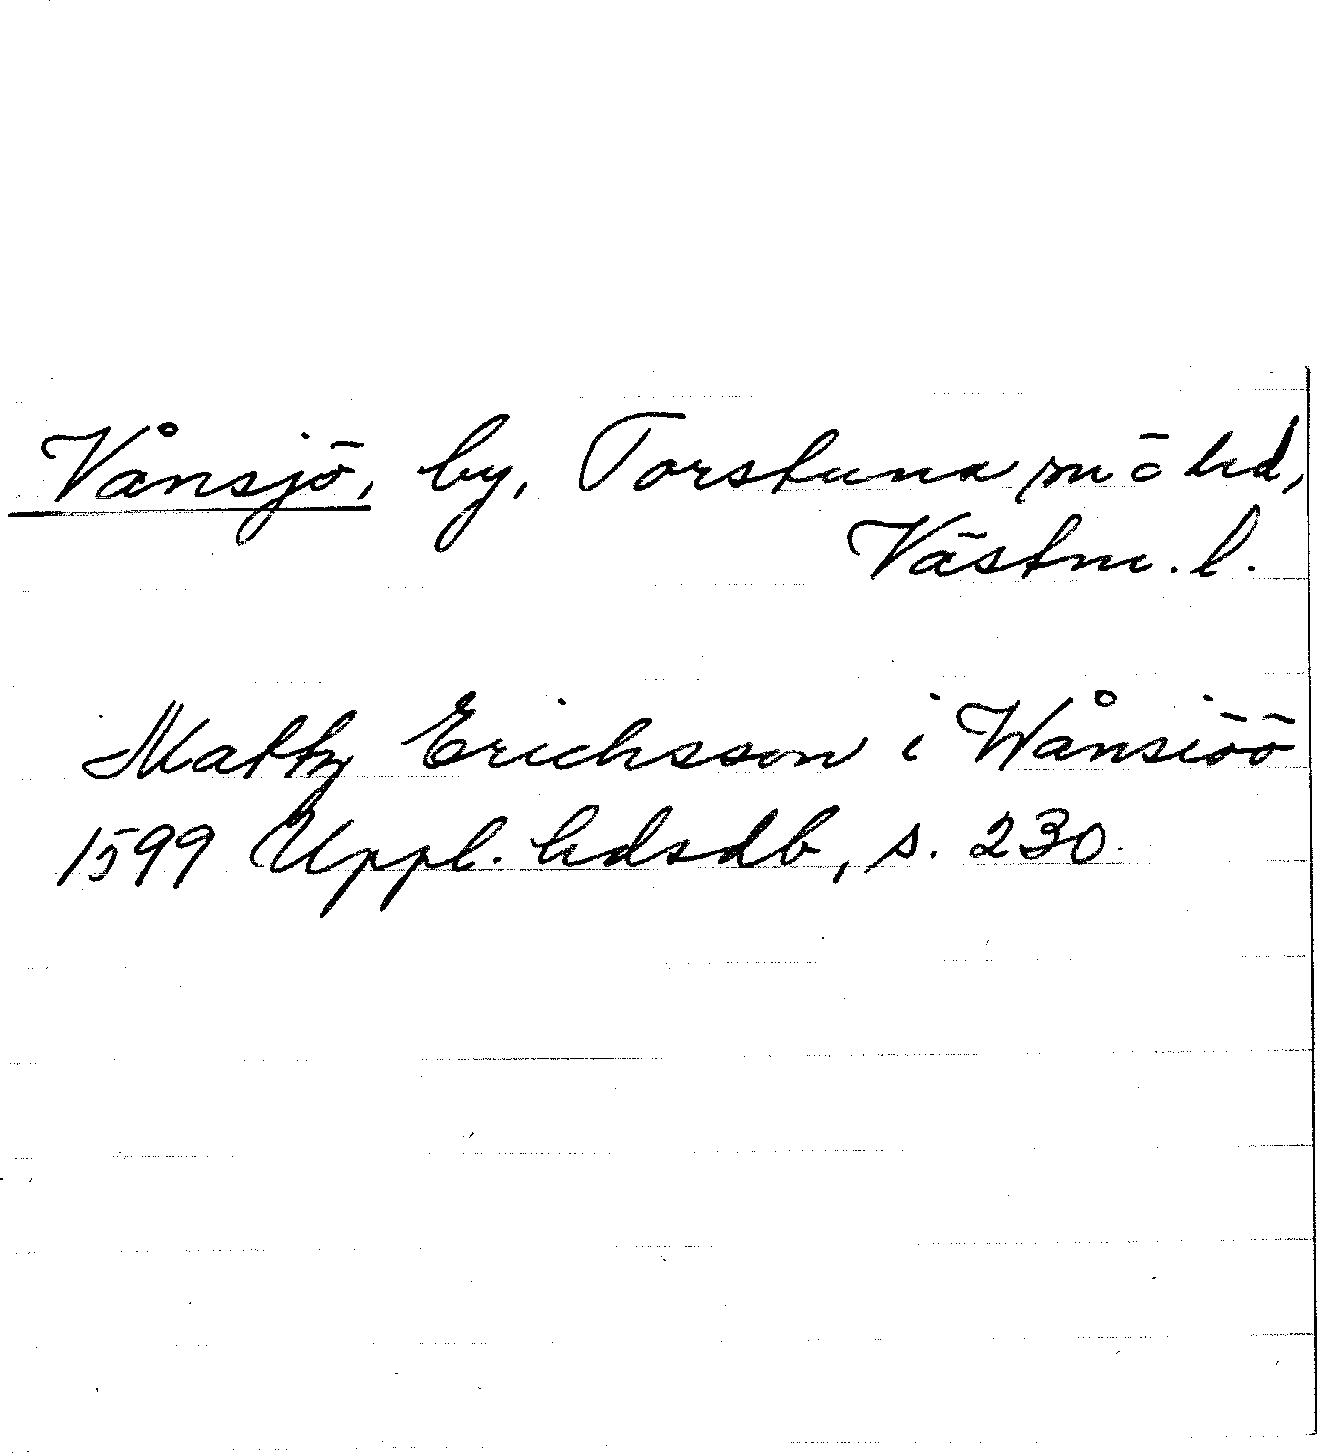 Vånsjö, by, Torstuna sn o hd,
Västm. l.
Mattz Erichsson i Wånsiöö
1599 Uppl. hdsdb, s. 230.